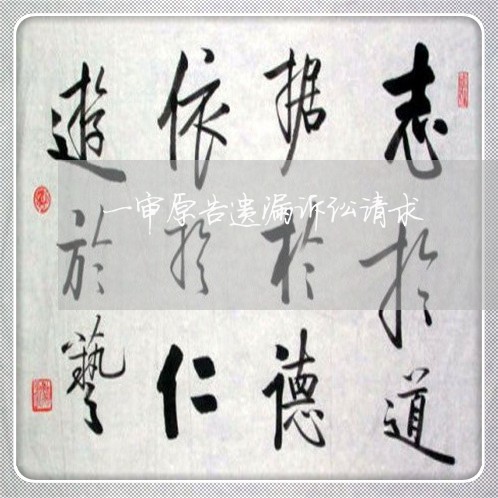 志於道
据於德
依於仁
遊於藝
一审原告遗漏诉讼请求